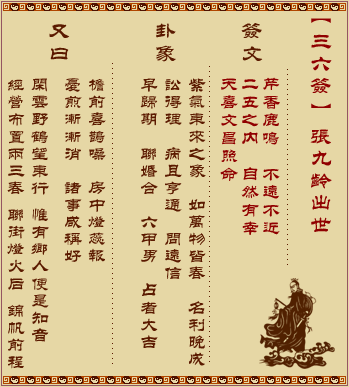 【三六簽】 張九齡出世
簽文
芹香鹿鳴 不遠不近
二五之内 自然有幸
天喜文昌照命
卦象
紫氣東來之象 如萬物皆春 名利晚成
訟得理 病且亨通 問遠信
早歸期 聯婚合 六甲男 占者大吉
又曰
檐前喜鵲噪 房中燈蕊報
憂煎漸漸消 諸事咸稱好
閑雲野鶴望東行 惟有鄉人便是知音
經營布置兩三春 聯街燈火后 錦帆前程